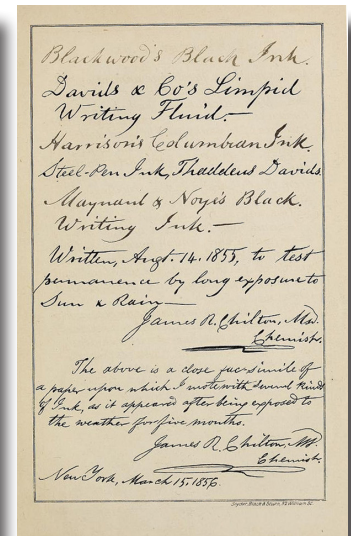 Blackwood's Black Ink.
Davids & Co's Limpid
Writing Fluid.—
Harrison's Columbian Ink.
Steel-Pen Ink, Thaddeus Davids.
Maynard & Noye's Black.
Writing Ink.—
Written, Augt. 14. 1855, to test
permanence by long exposure to
Sun & Rain—
James R. Chilton, Md.
Chemist.
The above is a close fac-simile of
a paper upon which I wrote with several kinds
of Ink, as it appeared after being exposed to
the weather for five months.
James R. Chilton, Md.
Chemist.
New York, March 15, 1856.
Snyder, Black & Sturn, 92 William St.